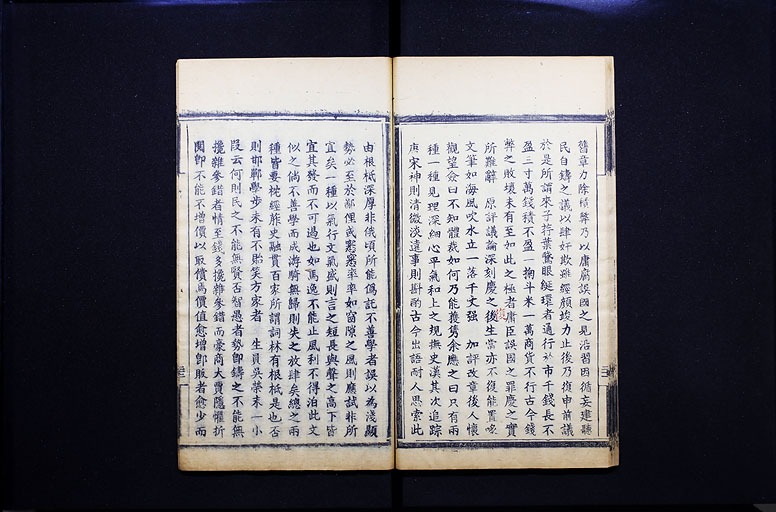 舊章力除積弊乃以庸腐誤國之見沿習因循妄建聽
民自鑄之議以肆奸欺雖經顏竣力止後乃復申前議
於是所謂來子荇葉鵞眼綖環者通行於市千錢長不
盈三寸萬錢積不盈一掬斗米一萬商貨不行古今錢
弊之敗壞未有至如此之極者庸臣誤國之罪慶之實
所難辭 原評議論深刻慶之復生當亦不復能置喙
文筆如海風吹水立一落千丈强 加評改章後人懷
觀望僉曰不知體裁如何乃能養雋余應之曰只有兩
種一種見理深細心平氣和上之規撫史漢其次追踪
唐宋神則清微淡遠事則斟酌古今出語耐人思索此
由根柢深厚非俄頃所能僞託不善學者誤以為淺顯
勢必至於鄙俚或窸窸率率如窗隙之風則應試非所
宜矣一種以氣行文氣盛則言之短長與聲之高下皆
宜其發而不可遏也如馬逸不能止風利不得泊此文
似之倘不善學而成游騎無歸則失之放肆矣總之兩
種皆要枕經葄史融貫百家所謂詞林有根柢是也否
則邯鄲學步未有不貽笑方家者 生員吳榮末一小
段云何則民之不能無賢否智愚者勢卽鑄之不能無
攙雜參錯者情至錢多攙雜參錯而豪商大賈隱懼折
閱卽不能不增價以取償焉價值愈增卽販者愈少而